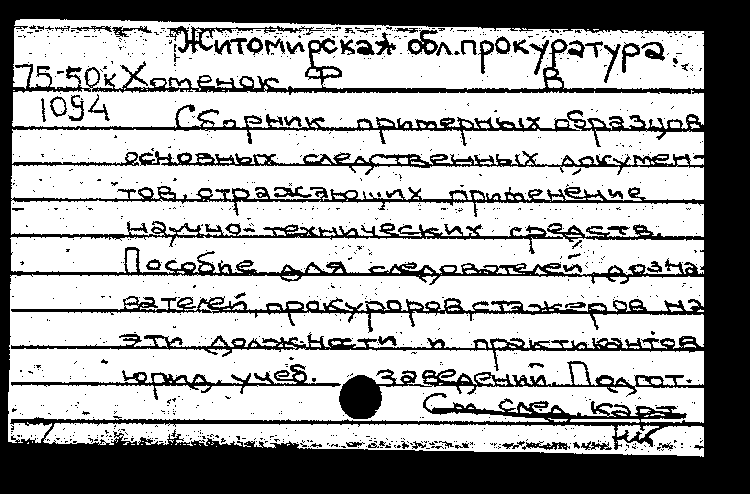 Житомирская обл. прокуратура.
75-50к Хотенок, Ф В
1094
Сборник примерных образцов
основных следственных докумен-
тов, отражающих применение
научно-технических средств.
Пособие для следователей, дозна-
вателей, прокуроров, стажеров на
эти должности и практикантов
юрид. учеб. заведений. Подгот.
См. след. карт